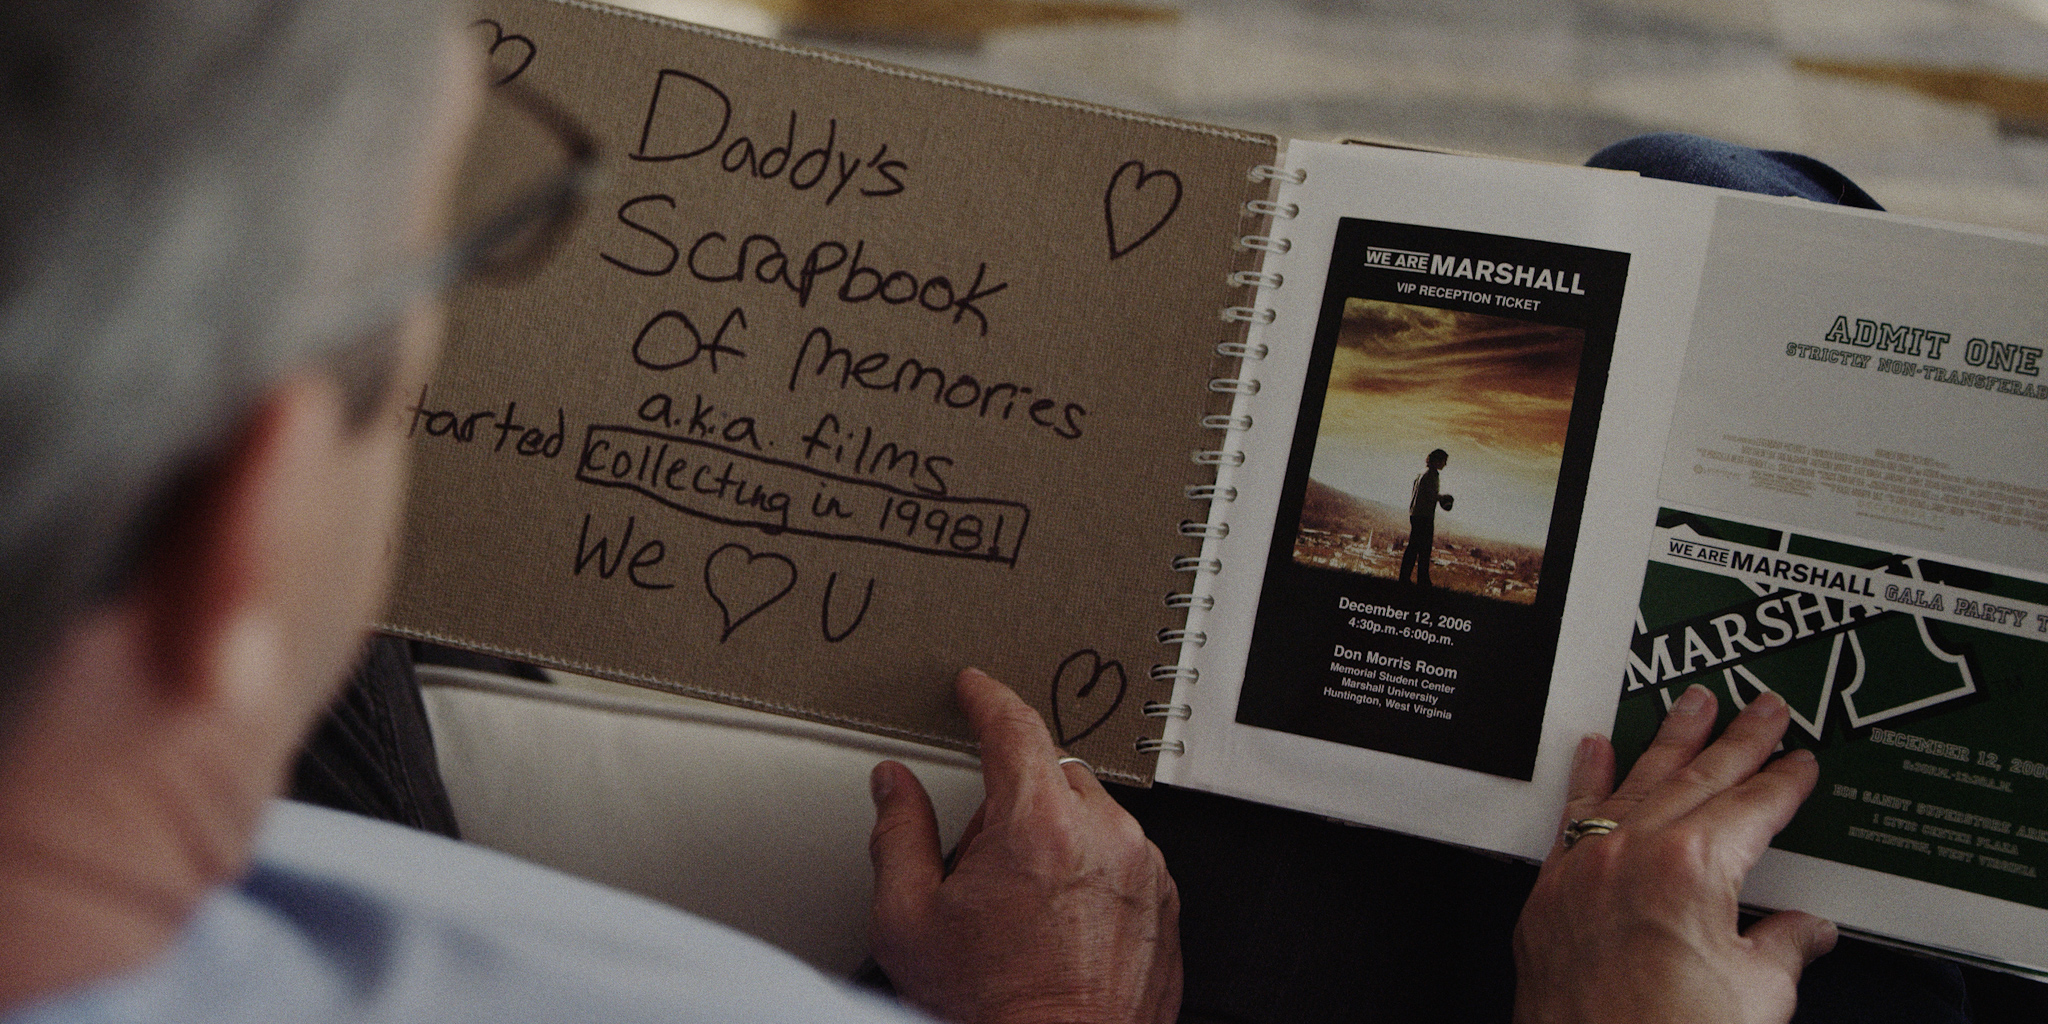 Daddy's
Scrapbook
Of Memories
a.k.a. films
tarted collecting in 1998!
We U
WE ARE MARSHALL
VIP RECEPTION TICKET
December 12, 2006
4:30p.m.-6:00p.m.
Don Morris Room
Memorial Student Center
Marshall University
Huntington, West Virginia
ADMIT ONE
STRICTLY NON-TRANSFERAB
WE ARE MARSHALL GALA PARTY T
MARSHA
DECEMBER 12, 200
BIG SANDY SUPERSTORE ARE
1 CIVIC CENTER PLAZA
HUNTINGTON, WEST VIRGINIA